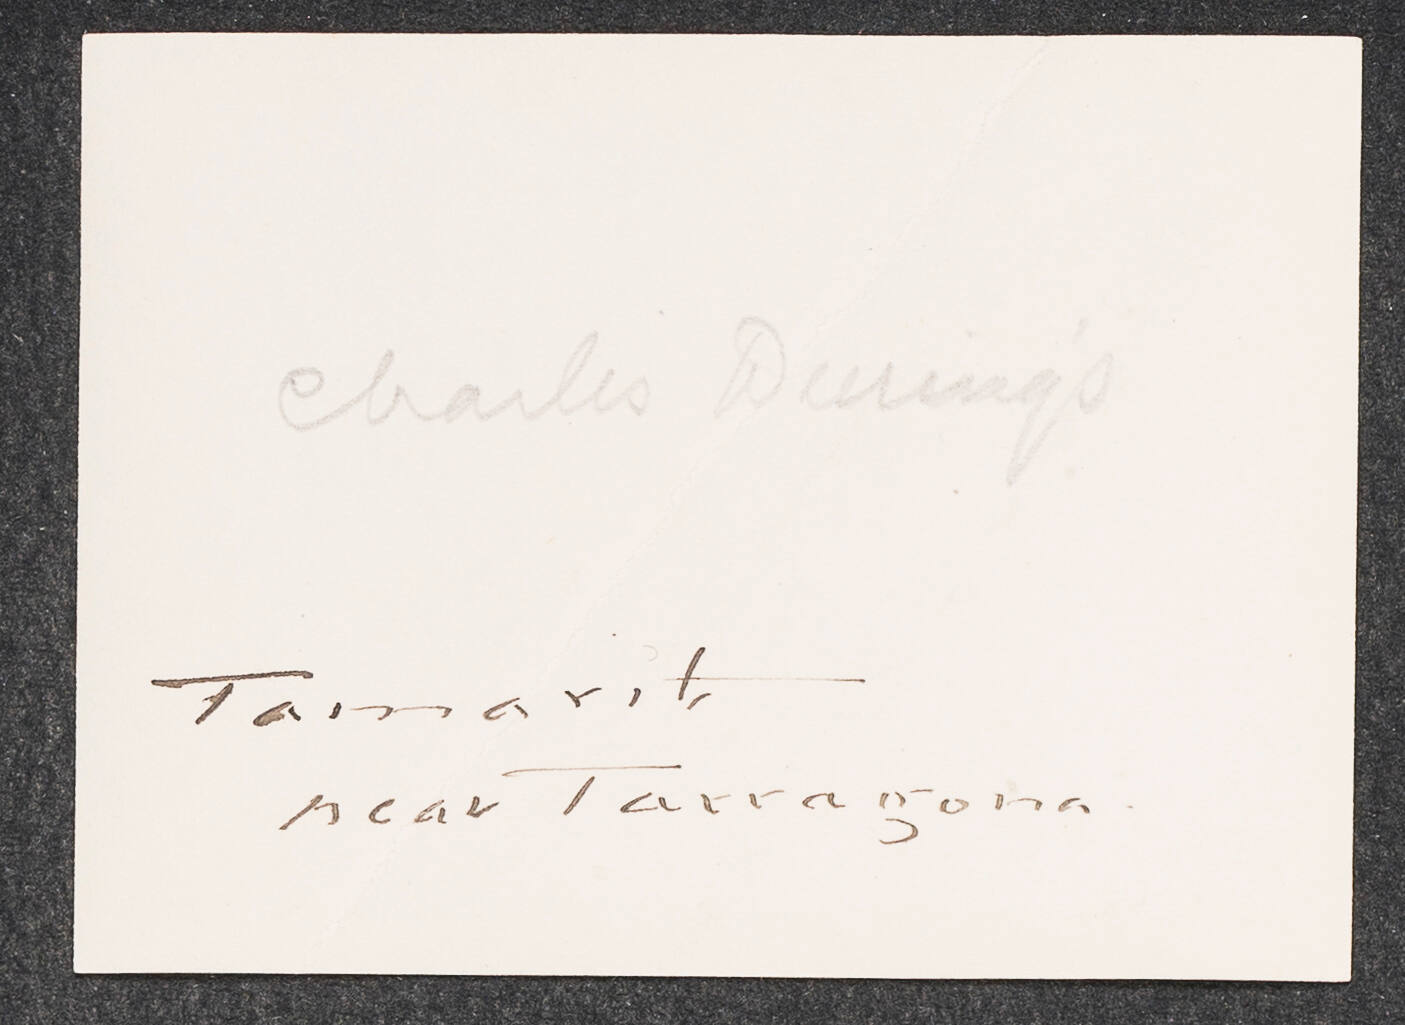 Charles Deering's
Tamarit
near Tarragona.